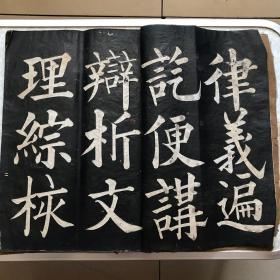 律義遍
訖便講
辯析文
理綜核